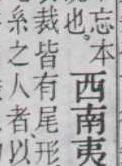 忘本
西南夷
也。
裁皆有尾形
之人者以